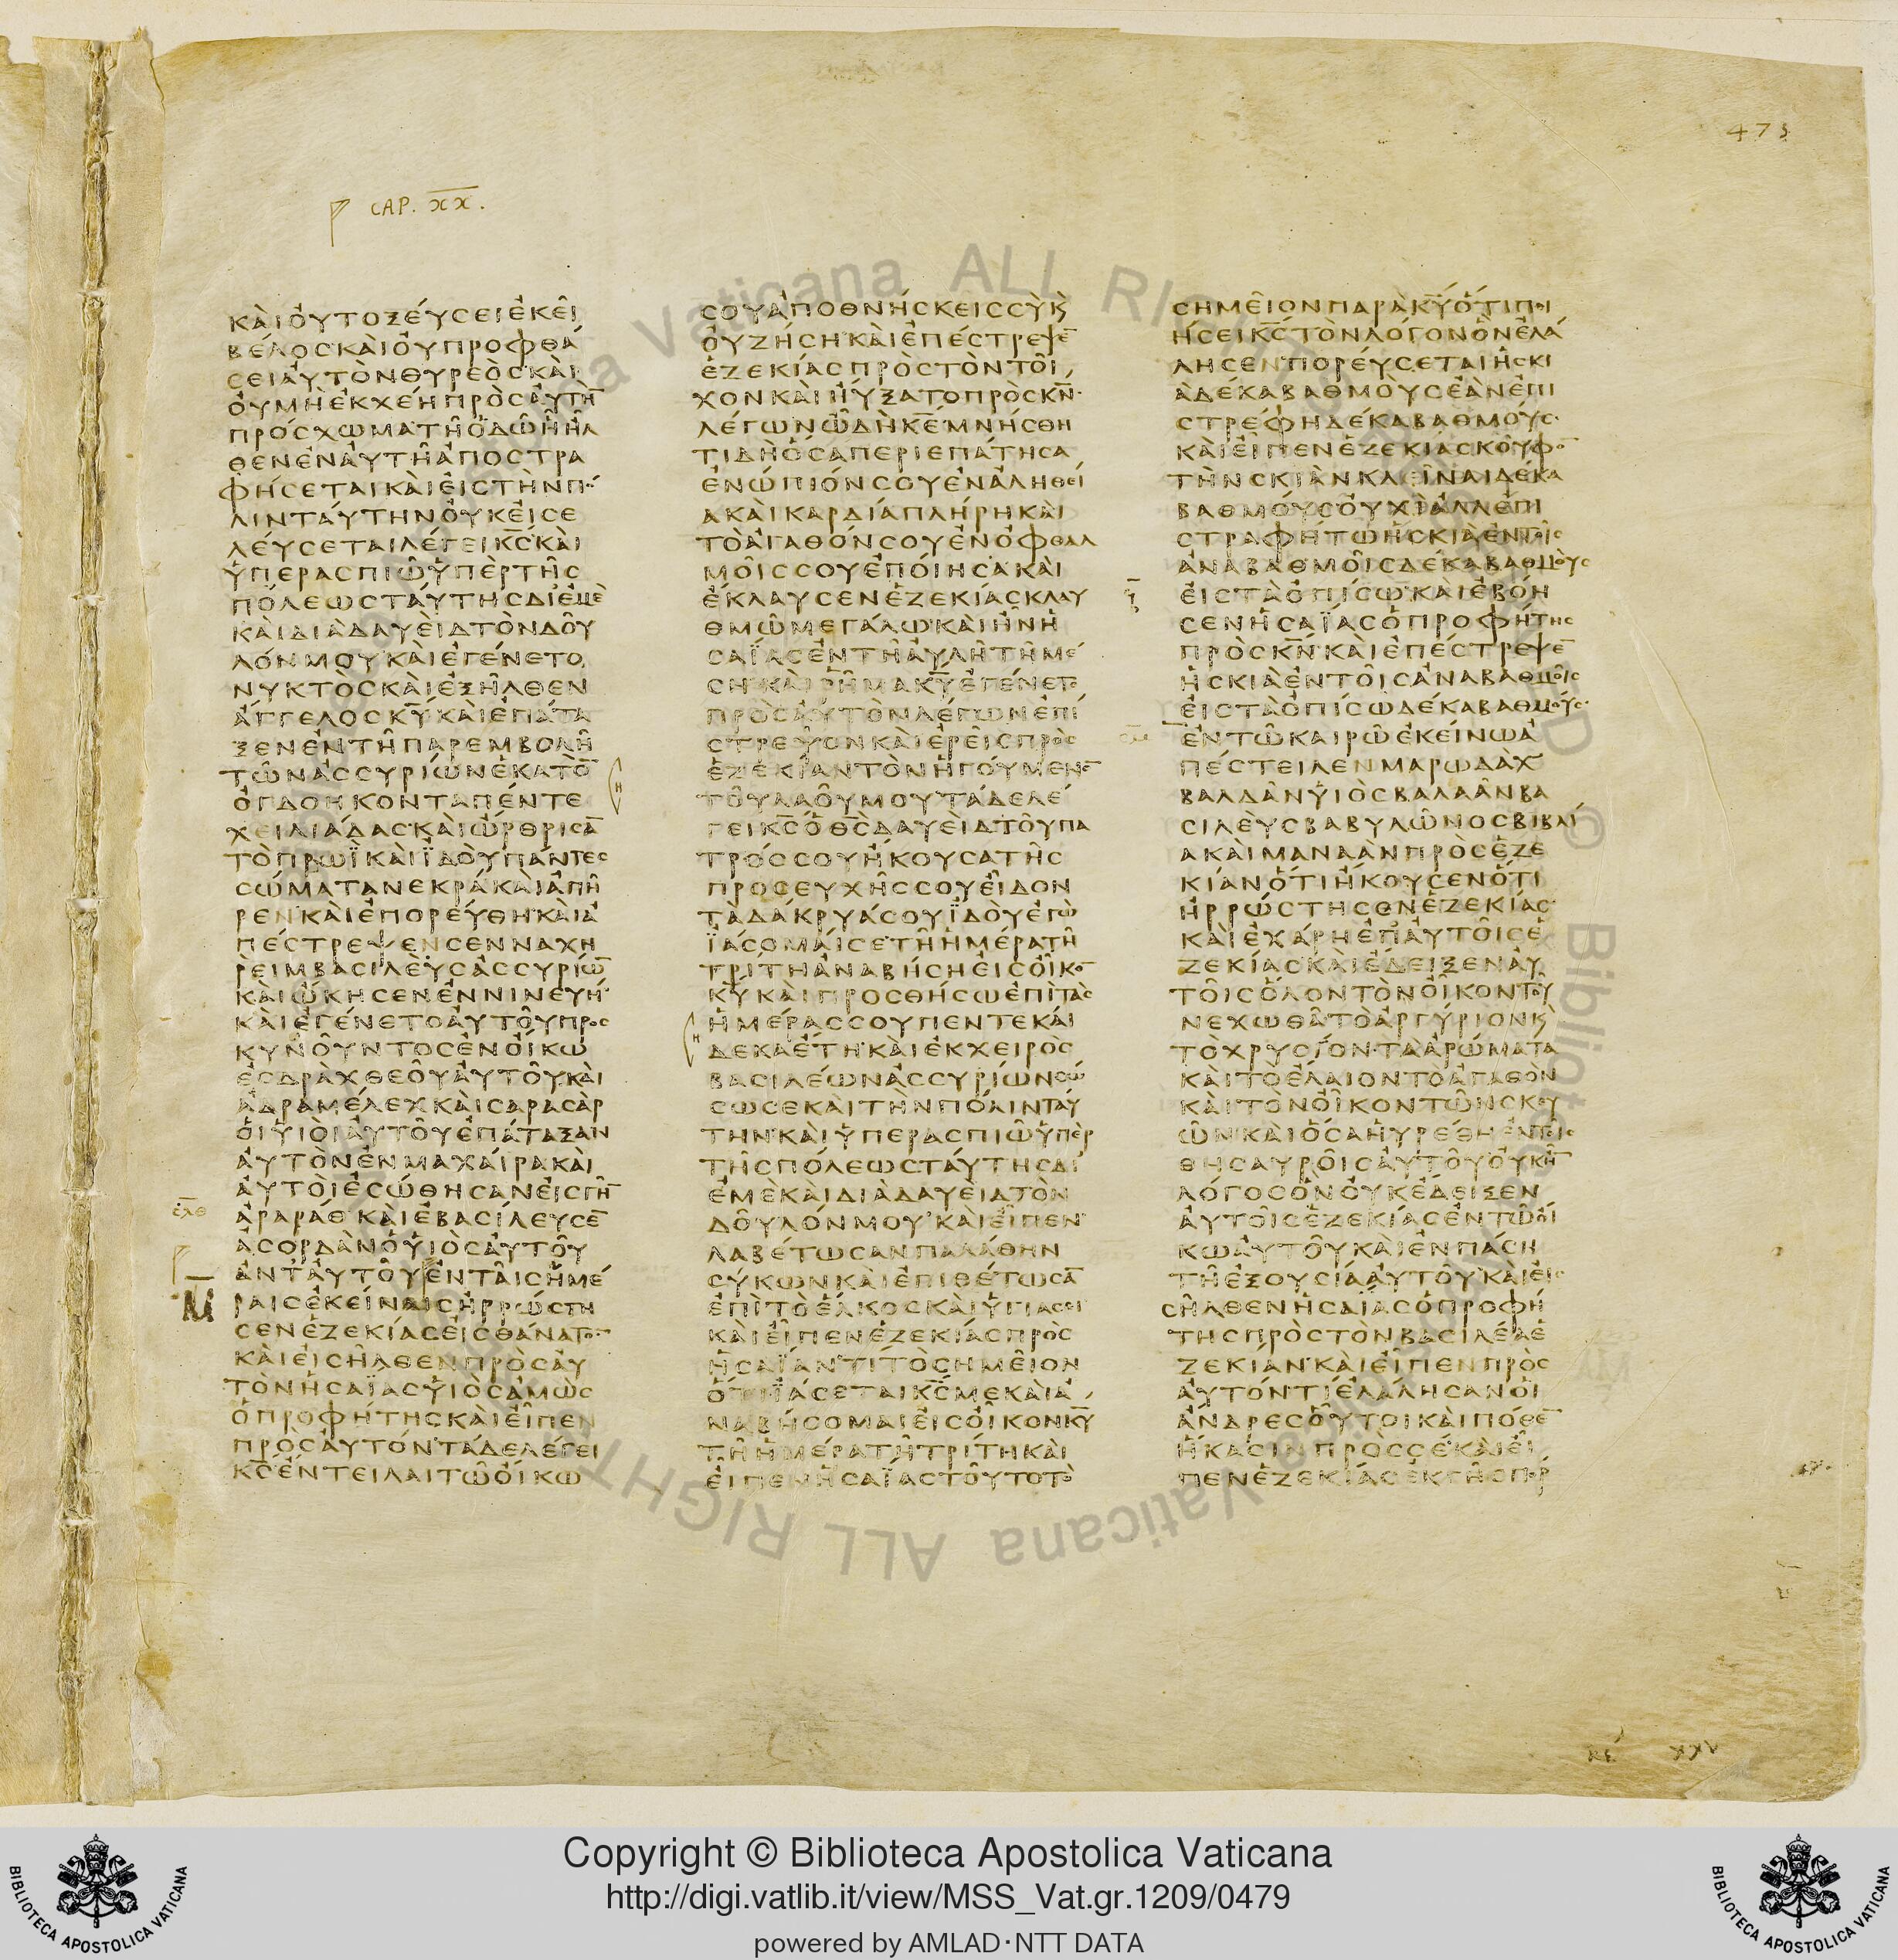 473
CAP. XX.
ΚΑΙ ΟΥ ΤΟΞΕΥΣΕΙ ΕΚΕΙ
ΒΕΛΟΣ ΚΑΙ ΟΥ ΠΡΟΦΘΑ
ΣΕΙ ΑΥΤΟΝ ΘΥΡΕΟΣ ΚΑΙ
ΟΥ ΜΗ ΕΚΧΕΗ ΠΡΟΣ ΑΥΤΗ̅
ΠΡΟΣΧΩΜΑ ΤΗ ΟΔΩ Η ΗΛ
ΘΕΝ ΕΝ ΑΥΤΗ ΑΠΟΣΤΡΑ
ΦΗΣΕΤΑΙ ΚΑΙ ΕΙΣ ΤΗΝ ΠΟ
ΛΙΝ ΤΑΥΤΗΝ ΟΥΚ ΕΙΣΕ
ΛΕΥΣΕΤΑΙ ΛΕΓΕΙ Κ̅Σ̅ ΚΑΙ
ΥΠΕΡΑΣΠΙΩ ΥΠΕΡ ΤΗΣ
ΠΟΛΕΩΣ ΤΑΥΤΗΣ ΔΙ ΕΜΕ
ΚΑΙ ΔΙΑ ΔΑΥΕΙΔ ΤΟΝ ΔΟΥ
ΛΟΝ ΜΟΥ ΚΑΙ ΕΓΕΝΕΤΟ
ΝΥΚΤΟΣ ΚΑΙ ΕΞΗΛΘΕΝ
ΑΓΓΕΛΟΣ Κ̅Υ̅ ΚΑΙ ΕΠΑΤΑ
ΞΕΝ ΕΝ ΤΗ ΠΑΡΕΜΒΟΛΗ
ΤΩΝ ΑΣΣΥΡΙΩΝ ΕΚΑΤΟ̅
ΟΓΔΟΗΚΟΝΤΑ ΠΕΝΤΕ
ΧΕΙΛΙΑΔΑΣ ΚΑΙ ΩΡΘΡΙΣΑ̅
ΤΟ ΠΡΩΪ ΚΑΙ ΪΔΟΥ ΠΑΝΤΕΣ
ΣΩΜΑΤΑ ΝΕΚΡΑ ΚΑΙ ΑΠΗ
ΡΕΝ ΚΑΙ ΕΠΟΡΕΥΘΗ ΚΑΙ Α
ΠΕΣΤΡΕΨΕΝ ΣΕΝΝΑΧΗ
ΡΕΙΜ ΒΑΣΙΛΕΥΣ ΑΣΣΥΡΙΩ̅
ΚΑΙ ΩΚΗΣΕΝ ΕΝ ΝΙΝΕΥΗ
ΚΑΙ ΕΓΕΝΕΤΟ ΑΥΤΟΥ ΠΡΟΣ
ΚΥΝΟΥΝΤΟΣ ΕΝ ΟΙΚΩ
ΕΣΔΡΑΧ ΘΕΟΥ ΑΥΤΟΥ ΚΑΙ
ΑΔΡΑΜΕΛΕΧ ΚΑΙ ΣΑΡΑΣΑΡ
ΟΙ ΥΙΟΙ ΑΥΤΟΥ ΕΠΑΤΑΞΑΝ
ΑΥΤΟΝ ΕΝ ΜΑΧΑΙΡΑ ΚΑΙ
ΑΥΤΟΙ ΕΣΩΘΗΣΑΝ ΕΙΣ ΓΗ̅
ΑΡΑΡΑΘ ΚΑΙ ΕΒΑΣΙΛΕΥΣΕ̅
ΑΣΟΡΔΑΝ Ο ΥΙΟΣ ΑΥΤΟΥ
ΑΝΤ ΑΥΤΟΥ ΕΝ ΤΑΙΣ ΗΜΕ
ΡΑΙΣ ΕΚΕΙΝΑΙΣ ΗΡΡΩΣΤΗ
ΣΕΝ ΕΖΕΚΙΑΣ ΕΙΣ ΘΑΝΑΤΟ̅
ΚΑΙ ΕΙΣΗΛΘΕΝ ΠΡΟΣ ΑΥ
ΤΟΝ ΗΣΑΪΑΣ ΥΙΟΣ ΑΜΩΣ
Ο ΠΡΟΦΗΤΗΣ ΚΑΙ ΕΙΠΕΝ
ΠΡΟΣ ΑΥΤΟΝ ΤΑΔΕ ΛΕΓΕΙ
Κ̅Σ̅ ΕΝΤΕΙΛΑΙ ΤΩ ΟΙΚΩ
ΣΟΥ ΑΠΟΘΝΗΣΚΕΙΣ ΣΥ Κ
ΟΥ ΖΗΣΗ ΚΑΙ ΕΠΕΣΤΡΕΨΕ̅
ΕΖΕΚΙΑΣ ΠΡΟΣ ΤΟΝ ΤΟΙ
ΧΟΝ ΚΑΙ ΗΥΞΑΤΟ ΠΡΟΣ Κ̅Ν̅
ΛΕΓΩΝ Ω ΔΗ Κ̅Ε̅ ΜΝΗΣΘΗ
ΤΙ ΔΗ ΟΣΑ ΠΕΡΙΕΠΑΤΗΣΑ
ΕΝΩΠΙΟΝ ΣΟΥ ΕΝ ΑΛΗΘΕΙ
Α ΚΑΙ ΚΑΡΔΙΑ ΠΛΗΡΗ ΚΑΙ
ΤΟ ΑΓΑΘΟΝ ΣΟΥ ΕΝ ΟΦΘΑΛ
ΜΟΙΣ ΣΟΥ ΕΠΟΙΗΣΑ ΚΑΙ
ΕΚΛΑΥΣΕΝ ΕΖΕΚΙΑΣ ΚΛΑΥ
ΘΜΩ ΜΕΓΑΛΩ ΚΑΙ ΗΝ Η
ΣΑΪΑΣ ΕΝ ΤΗ ΑΥΛΗ ΤΗ ΜΕ
ΣΗ ΚΑΙ ΡΗΜΑ Κ̅Υ̅ ΕΓΕΝΕΤΟ
ΠΡΟΣ ΑΥΤΟΝ ΛΕΓΩΝ ΕΠΙ
ΣΤΡΕΨΟΝ ΚΑΙ ΕΡΕΙΣ ΠΡΟΣ
ΕΖΕΚΙΑΝ ΤΟΝ ΗΓΟΥΜΕΝΟ̅
ΤΟΥ ΛΑΟΥ ΜΟΥ ΤΑΔΕ ΛΕ
ΓΕΙ Κ̅Σ̅ Ο Θ̅Σ̅ ΔΑΥΕΙΔ ΤΟΥ ΠΑ
ΤΡΟΣ ΣΟΥ ΗΚΟΥΣΑ ΤΗΣ
ΠΡΟΣΕΥΧΗΣ ΣΟΥ ΕΙΔΟΝ
ΤΑ ΔΑΚΡΥΑ ΣΟΥ ΪΔΟΥ ΕΓΩ
ΪΑΣΟΜΑΙ ΣΕ ΤΗ ΗΜΕΡΑ ΤΗ
ΤΡΙΤΗ ΑΝΑΒΗΣΗ ΕΙΣ ΟΙΚΟ̅
Κ̅Υ̅ ΚΑΙ ΠΡΟΣΘΗΣΩ ΕΠΙ ΤΑΣ
ΗΜΕΡΑΣ ΣΟΥ ΠΕΝΤΕΚΑΙ
ΔΕΚΑ ΕΤΗ ΚΑΙ ΕΚ ΧΕΙΡΟΣ
ΒΑΣΙΛΕΩΝ ΑΣΣΥΡΙΩΝ ΣΩ
ΣΩ ΣΕ ΚΑΙ ΤΗΝ ΠΟΛΙΝ ΤΑΥ
ΤΗΝ ΚΑΙ ΥΠΕΡΑΣΠΙΩ ΥΠΕΡ
ΤΗΣ ΠΟΛΕΩΣ ΤΑΥΤΗΣ ΔΙ
ΕΜΕ ΚΑΙ ΔΙΑ ΔΑΥΕΙΔ ΤΟΝ
ΔΟΥΛΟΝ ΜΟΥ ΚΑΙ ΕΙΠΕΝ
ΛΑΒΕΤΩΣΑΝ ΠΑΛΑΘΗΝ
ΣΥΚΩΝ ΚΑΙ ΕΠΙΘΕΤΩΣΑ̅
ΕΠΙ ΤΟ ΕΛΚΟΣ ΚΑΙ ΥΓΙΑΣΕΙ
ΚΑΙ ΕΙΠΕΝ ΕΖΕΚΙΑΣ ΠΡΟΣ
ΗΣΑΪΑΝ ΤΙ ΤΟ ΣΗΜΕΙΟΝ
ΟΤΙ ΪΑΣΕΤΑΙ Κ̅Σ̅ ΜΕ ΚΑΙ Α
ΝΑΒΗΣΟΜΑΙ ΕΙΣ ΟΙΚΟΝ Κ̅Υ̅
ΤΗ ΗΜΕΡΑ ΤΗ ΤΡΙΤΗ ΚΑΙ
ΕΙΠΕΝ ΗΣΑΪΑΣ ΤΟΥΤΟ ΤΟ
ΣΗΜΕΙΟΝ ΠΑΡΑ Κ̅Υ̅ ΟΤΙ ΠΟΙ
ΗΣΕΙ Κ̅Σ̅ ΤΟΝ ΛΟΓΟΝ ΟΝ ΕΛΑ
ΛΗΣΕΝ ΠΟΡΕΥΣΕΤΑΙ Η ΣΚΙ
Α ΔΕΚΑ ΒΑΘΜΟΥΣ ΕΑΝ ΕΠΙ
ΣΤΡΕΦΗ ΔΕΚΑ ΒΑΘΜΟΥΣ
ΚΑΙ ΕΙΠΕΝ ΕΖΕΚΙΑΣ ΚΟΥΦΟ̅
ΤΗΝ ΣΚΙΑΝ ΚΛΕΙΝΑΙ ΔΕΚΑ
ΒΑΘΜΟΥΣ ΟΥΧΙ ΑΛΛ ΕΠΙ
ΣΤΡΑΦΗΤΩ Η ΣΚΙΑ ΕΝ ΤΟΙΣ
ΑΝΑΒΑΘΜΟΙΣ ΔΕΚΑ ΒΑΘΜΟΥΣ
ΕΙΣ ΤΑ ΟΠΙΣΩ ΚΑΙ ΕΒΟΗ
ΣΕΝ ΗΣΑΪΑΣ Ο ΠΡΟΦΗΤΗΣ
ΠΡΟΣ Κ̅Ν̅ ΚΑΙ ΕΠΕΣΤΡΕΨΕ̅
Η ΣΚΙΑ ΕΝ ΤΟΙΣ ΑΝΑΒΑΘΜΟΙΣ
ΕΙΣ ΤΑ ΟΠΙΣΩ ΔΕΚΑ ΒΑΘΜΟΥΣ
ΕΝ ΤΩ ΚΑΙΡΩ ΕΚΕΙΝΩ Α
ΠΕΣΤΕΙΛΕΝ ΜΑΡΩΔΑΧ
ΒΑΛΔΑΝ ΥΙΟΣ ΒΑΛΑΑΝ ΒΑ
ΣΙΛΕΥΣ ΒΑΒΥΛΩΝΟΣ ΒΙΒΛΙ
Α ΚΑΙ ΜΑΝΑΑΝ ΠΡΟΣ ΕΖΕ
ΚΙΑΝ ΟΤΙ ΗΚΟΥΣΕΝ ΟΤΙ
ΗΡΡΩΣΤΗΣΕΝ ΕΖΕΚΙΑΣ
ΚΑΙ ΕΧΑΡΗ ΕΠ ΑΥΤΟΙΣ Ε
ΖΕΚΙΑΣ ΚΑΙ ΕΔΕΙΞΕΝ ΑΥ
ΤΟΙΣ ΟΛΟΝ ΤΟΝ ΟΙΚΟΝ ΤΟΥ
ΝΕΧΩΘΑ ΤΟ ΑΡΓΥΡΙΟΝ Κ
ΤΟ ΧΡΥΣΙΟΝ ΤΑ ΑΡΩΜΑΤΑ
ΚΑΙ ΤΟ ΕΛΑΙΟΝ ΤΟ ΑΓΑΘΟΝ
ΚΑΙ ΤΟΝ ΟΙΚΟΝ ΤΩΝ ΣΚΕΥ
ΩΝ ΚΑΙ ΟΣΑ ΗΥΡΕΘΗ ΕΝ ΤΟΙΣ
ΘΗΣΑΥΡΟΙΣ ΑΥΤΟΥ ΟΥΚ Η̅
ΛΟΓΟΣ ΟΝ ΟΥΚ ΕΔΕΙΞΕΝ
ΑΥΤΟΙΣ ΕΖΕΚΙΑΣ ΕΝ ΤΩ ΟΙ
ΚΩ ΑΥΤΟΥ ΚΑΙ ΕΝ ΠΑΣΗ
ΤΗ ΕΞΟΥΣΙΑ ΑΥΤΟΥ ΚΑΙ ΕΙΣ
ΣΗΛΘΕΝ ΗΣΑΙΑΣ Ο ΠΡΟΦΗ
ΤΗΣ ΠΡΟΣ ΤΟΝ ΒΑΣΙΛΕΑ Ε
ΖΕΚΙΑΝ ΚΑΙ ΕΙΠΕΝ ΠΡΟΣ
ΑΥΤΟΝ ΤΙ ΕΛΑΛΗΣΑΝ ΟΙ
ΑΝΔΡΕΣ ΟΥΤΟΙ ΚΑΙ ΠΟΘΕ̅
ΗΚΑΣΙΝ ΠΡΟΣ ΣΕ ΚΑΙ ΕΙ
ΠΕΝ ΕΖΕΚΙΑΣ ΕΚ ΓΗΣ ΠΟΡ
Copyright © Biblioteca Apostolica Vaticana
http://digi.vatlib.it/view/MSS_Vat.gr.1209/0479
powered by AMLAD·NTT DATA
BIBLIOTECA APOSTOLICA VATICANA
BIBLIOTECA APOSTOLICA VATICANA